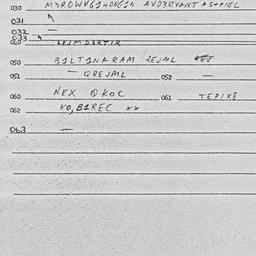 030 M3ROWVG1HONG1N AVD3RVANT AS+PIEL
031
032 —
033
040 LEIMD3RTIR
050 B1LT1NARAM 2EJML
051 — QREJML 052 —
060 NEX QKOC 061 TEPIX8
062 VO,B1REC xx
063 —